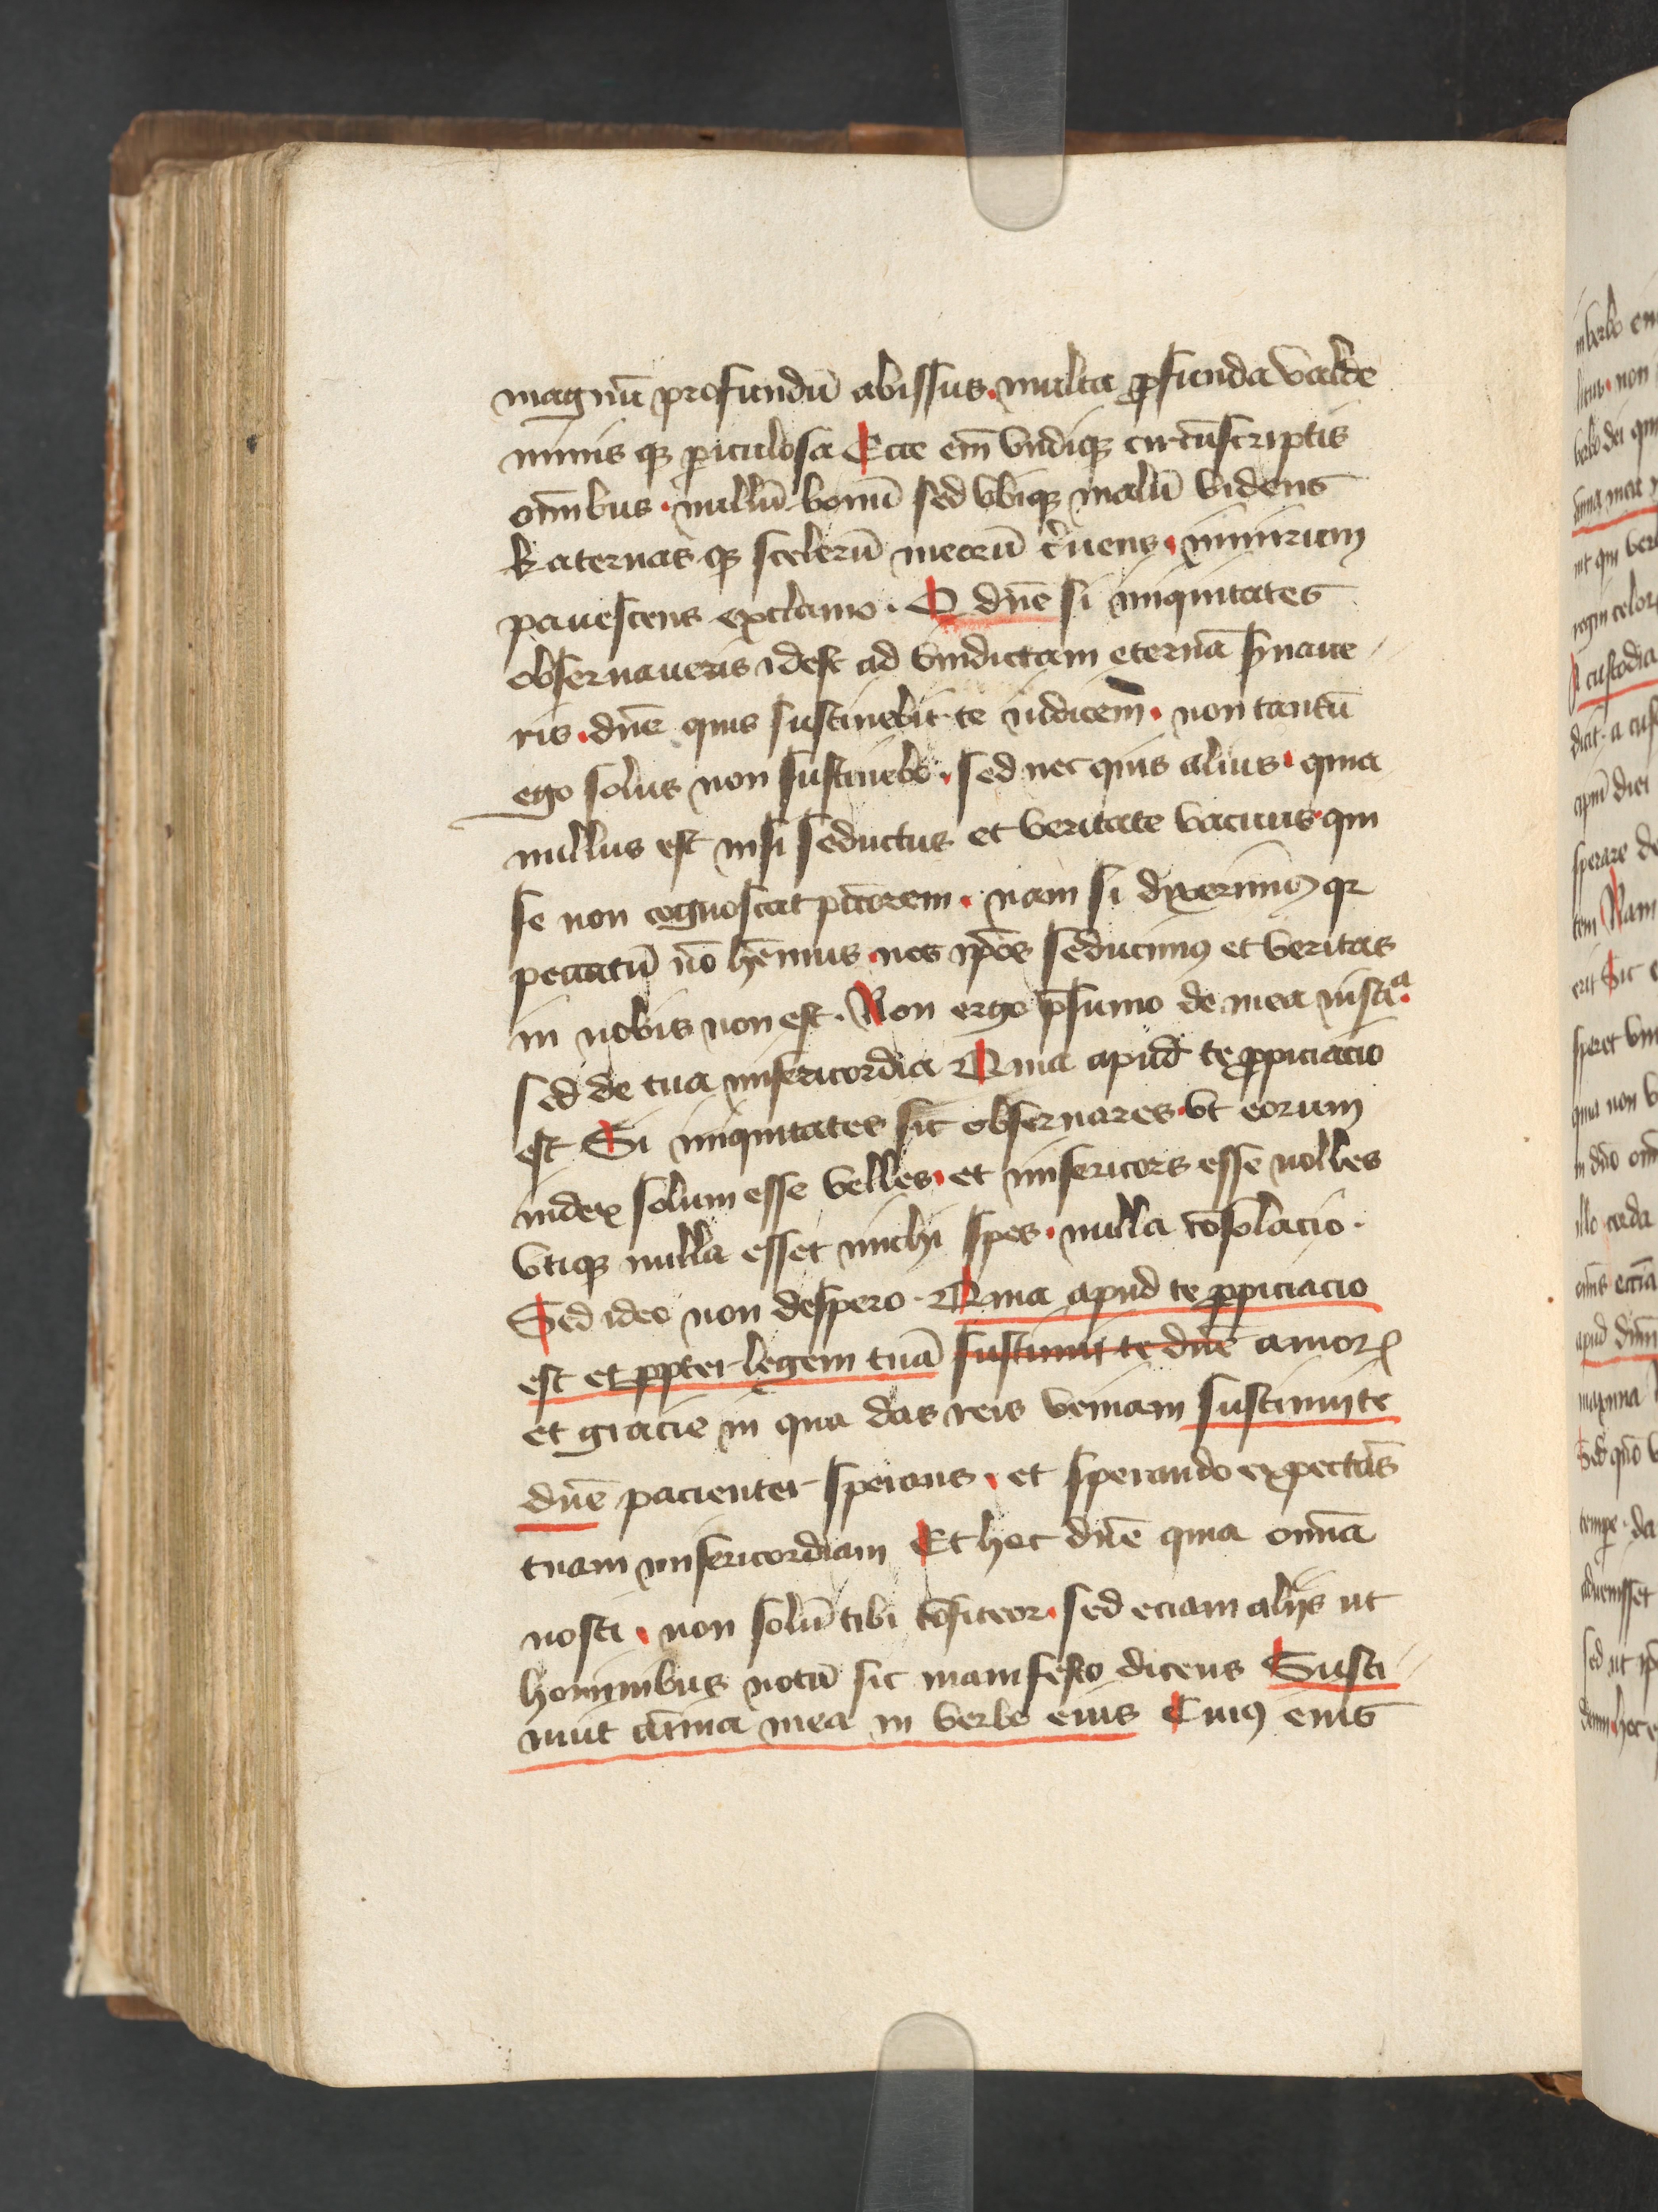 magnū profundū abissus · multa ꝓfunda valde
nimis qꝫ ꝑiculosa Ecce em̄ vndiqꝫ circūscriptis
om̄ibus · nullū bonū sed vbiqꝫ malū videns
katernas qꝫ scelerū meorū c̄uens · nimirum
pauescens exclamo · O dn̄e si iniquitates
obseruaueris idest ad vindictam eternā sīgnaue
ris · dn̄e quis sustinebit te iudicem · non tantū
ego solus non sustinebo · sed nec quis alius · quia
nullus est nisi seductus et veritate vacuus · qui
se non cognoscat pct̄orem · nam si dixerimꝰ qꝛ
peccatū nō hēmus · nos ip̄os seducimꝰ et veritas
in nobis non est · Non ergo p̄sumo de mea iusticia ·
sed de tua misericordia Quia apud te ꝓpiciacio
est Si iniquitates sic obseruares · vt eorum
iudex solum esse velles · et misericors esse nolles
vtiqꝫ nulla esset michi spes · nulla cōsolacio ·
Sed ideo non despero · Quia apud te ꝓpiciacio
est et ꝓpter legem tuā sustinui te dn̄e amorꝭ
et gracie in qua das reis veniam sustinui te
dn̄e pacienter sperans · et sperando expectās
tuam misericordiam Et hoc dn̄e quia omīa
nosti · non solū tibi cōfiteor · sed eciam alijs ut
hominibus notū sic manifesto dicens Susti
nuit aīma mea in verbo eius Cuiꝰ eius